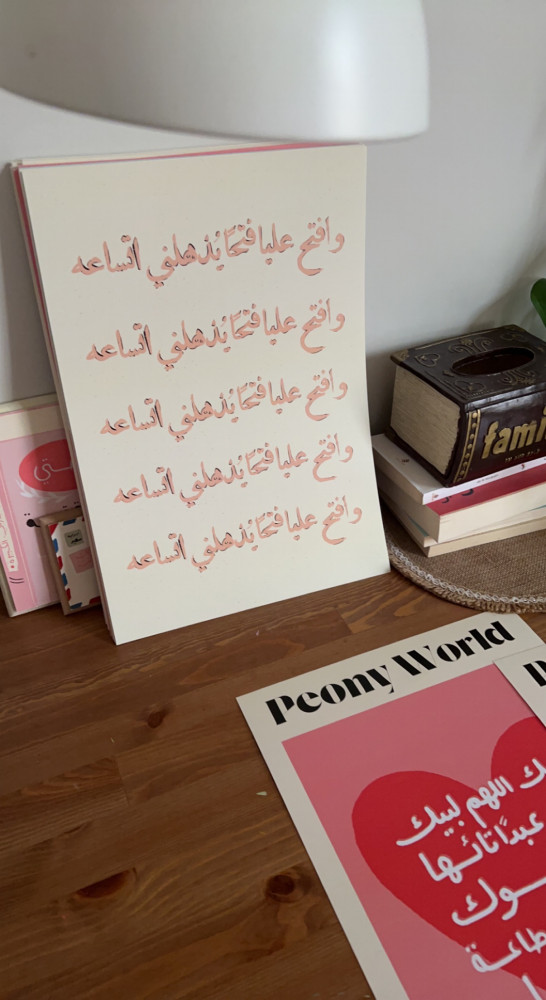 وافتح عليا فتحًا يُذهلني اتّساعه
وافتح عليا فتحًا يُذهلني اتّساعه
وافتح عليا فتحًا يُذهلني اتّساعه
وافتح عليا فتحًا يُذهلني اتّساعه
وافتح عليا فتحًا يُذهلني اتّساعه
Peony World
اللهم لبيك
عبدًا تائـها